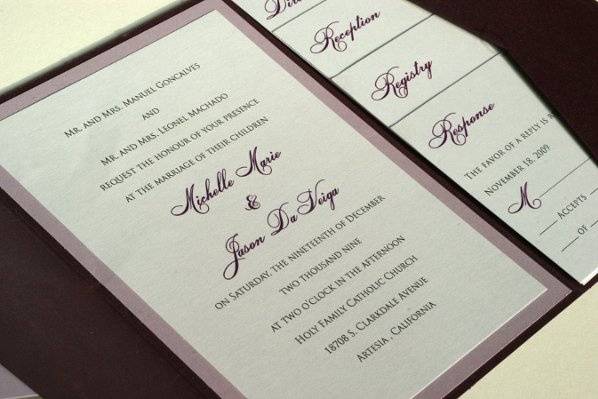 Mr. and Mrs. Manuel Goncalves
and
Mr. and Mrs. Leonel Machado
request the honour of your presence
at the marriage of their children
Michelle Marie
&
Jason DaVeiga
on Saturday, the nineteenth of December
two thousand nine
at two o'clock in the afternoon
Holy Family Catholic Church
18708 S. Clarkdale Avenue
Artesia, California
Reception
Registry
Response
The favor of a reply is
November 18, 2009
M
Accepts
of